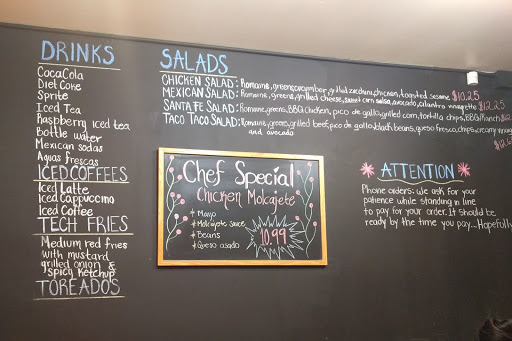 DRINKS
CocaCola
Diet Coke
Sprite
Iced Tea
Raspberry iced tea
Bottle water
Mexican sodas
Aguas frescas
ICED COFFEES
Iced Latte
Iced Cappuccino
Iced Coffee
TECH FRIES
Medium red fries
with mustard
grilled onion &
spicy ketchup
TOREADOS
SALADS
CHICKEN SALAD: Romaine, green, cucumber, grilled zucchini, chicken, toasted sesame $10.25
MEXICAN SALAD: Romaine, greens, grilled cheese, sweet corn salsa, avocado, cilantro vinagrette $12.25
SANTA FE SALAD: Romaine, greens, BBQ Chicken, pico de gallo, grilled corn, tortilla chips, BBQ Ranch $12
TACO TACO SALAD: Romaine, greens, grilled beef, pico de gallo, black beans, queso fresco, chips, creamy
and avocado
Chef Special
Chicken Molcajete
Mayo
Molcajete Sauce
Beans
Queso asado
10.99
ATTENTION
Phone orders: we ask for your
patience while standing in line
to pay for your order. It should be
ready by the time you pay... Hopefully